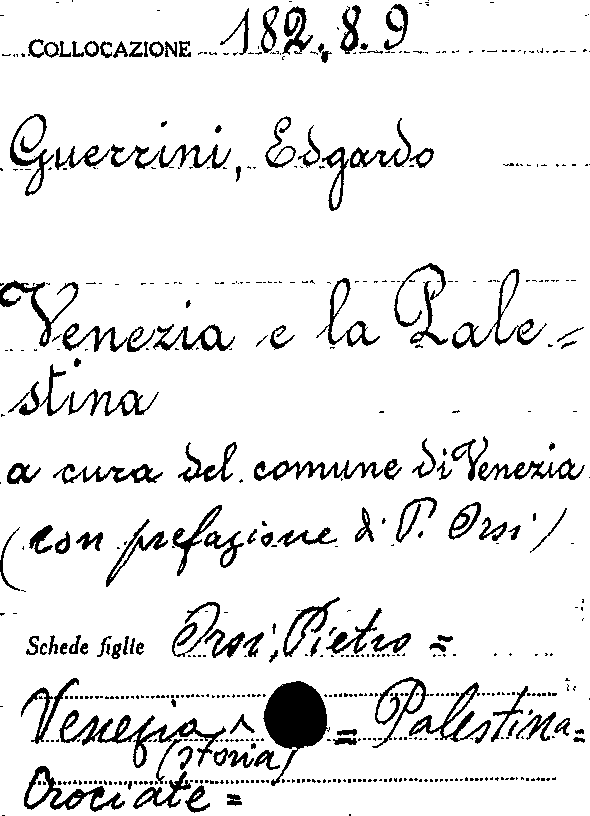 COLLOCAZIONE 182.8.9
Guerrini, Edgardo
Venezia e la Pale=
stina
a cura del comune di Venezia
(con prefazione di P. Orsi)
Schede figlie Orsi, Pietro =
Venezia ^ = Palestina =
(storia)
Crociate =